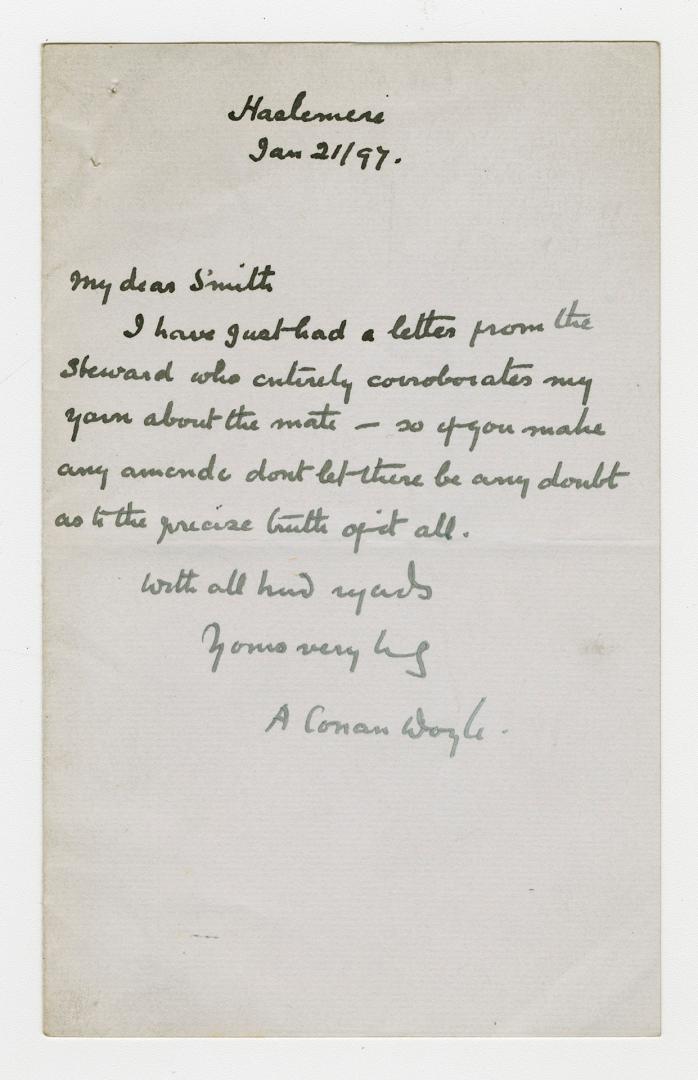 Haslemere
Jan 21/97.
My dear Smith
I have just had a letter from the
Steward who entirely corroborates my
yarn about the mate — so if you make
any amende dont let there be any doubt
as to the precise truth of it all.
With all kind regards
Yours very truly
A Conan Doyle.